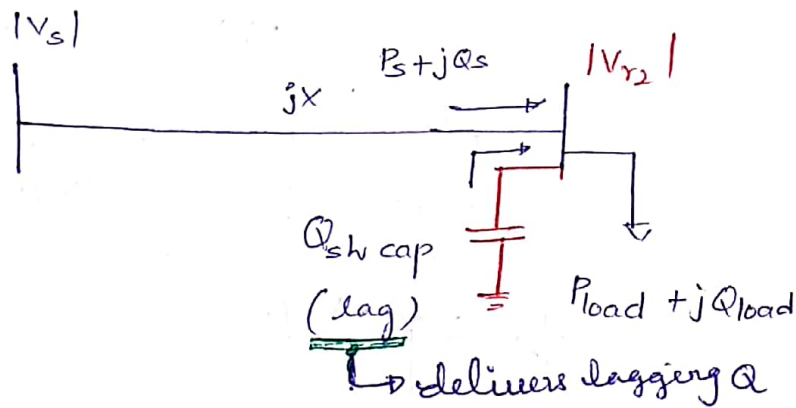 |Vs|
Ps+jQs
|Vr2|
jX
Qsh cap
(lag)
Pload +jQload
delivers lagging Q